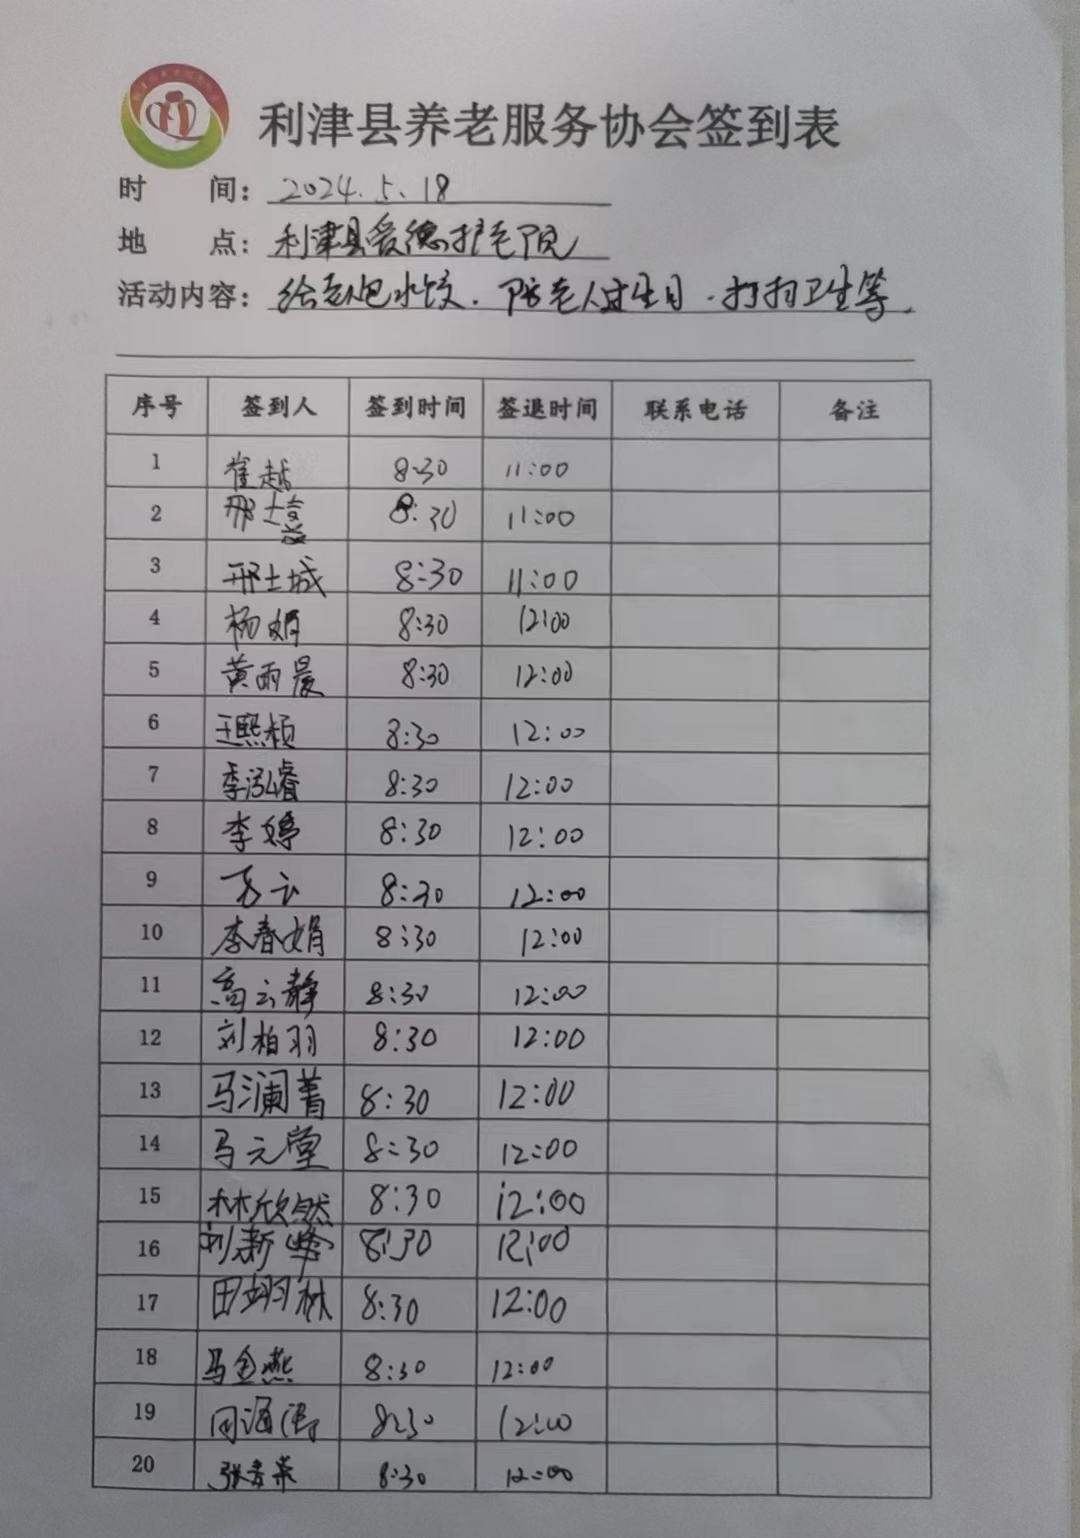 利津县养老服务协会签到表
时 间: 2024.5.18
地 点: 利津县爱德护老院
活动内容: 给老人包水饺.陪老人过生日.打扫卫生等.
序号 签到人 签到时间 签退时间 联系电话 备注
1 崔越 8:30 11:00
2 邢士 8:30 11:00
3 邢士城 8:30 11:00
4 杨娟 8:30 12:00
5 黄雨晨 8:30 12:00
6 王熙桢 8:30 12:00
7 李泓睿 8:30 12:00
8 李婷 8:30 12:00
9 8:30 12:00
10 李春娟 8:30 12:00
11 高云静 8:30 12:00
12 刘柏羽 8:30 12:00
13 马澜菁 8:30 12:00
14 马元堂 8:30 12:00
15 林欣然 8:30 12:00
16 刘新峰 8:30 12:00
17 田翊林 8:30 12:00
18 马金燕 8:30 12:00
19 周海涛 8:30 12:00
20 张秀英 8:30 12:00